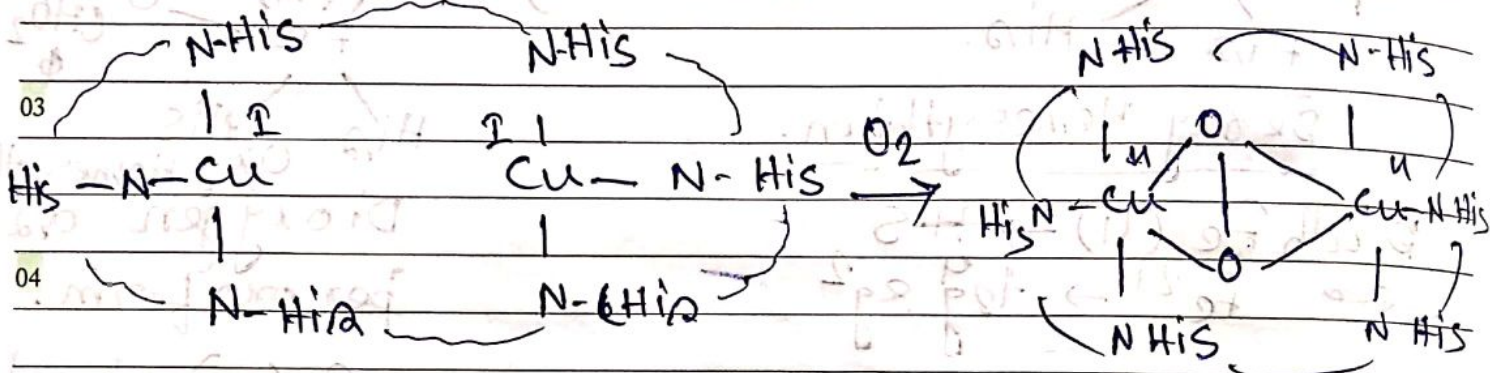 N-His N-His N-His N-His
03
I I O O2 II II
His-N-Cu Cu-N-His → His N-Cu Cu-N His
04
O
N-His N-His N His N His